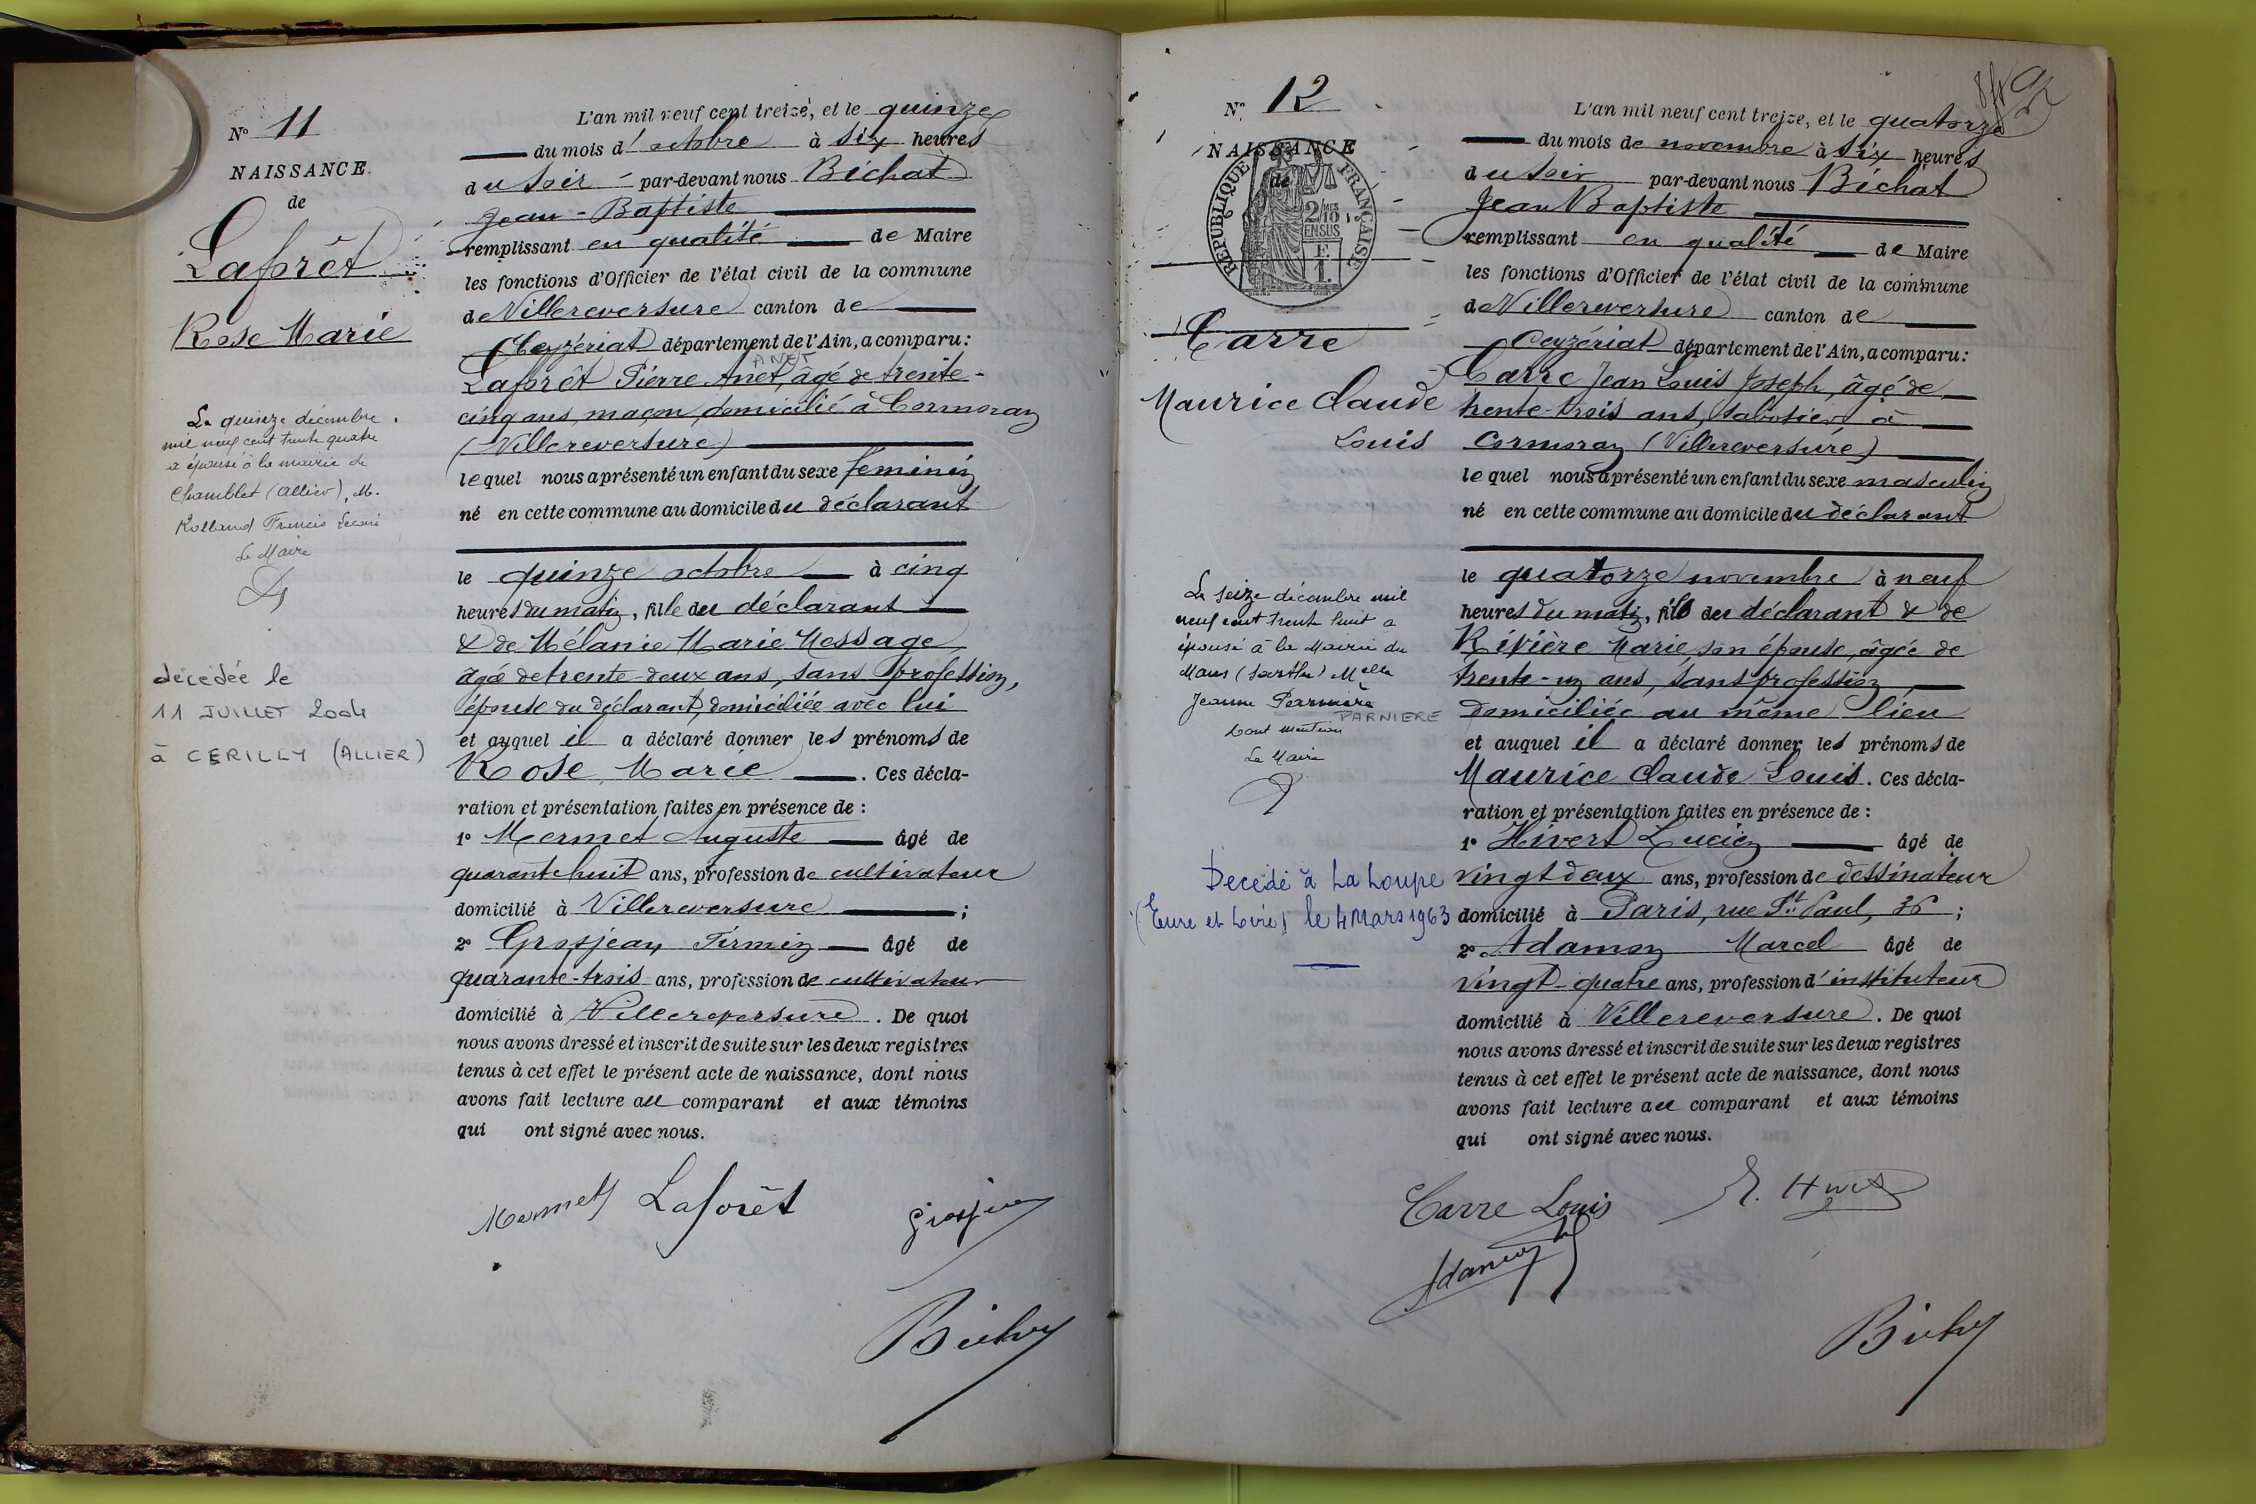 N° 11
NAISSANCE
de
Laforêt
Rose Marie
Le quinze décembre
mil neuf cent trente quatre
a épousé à la mairie de
Chamblet (Allier), M.
Rolland Francis
Le Maire
décédée le
11 JUILLET 2004
à CERILLY (ALLIER)
L'an mil neuf cent treize, et le quinze
du mois d'octobre à six heures
du soir par-devant nous Béchat
Jean-Baptiste
remplissant en qualité de Maire
les fonctions d'Officier de l'état civil de la commune
de Villereversure canton de
Ceyzériat département de l'Ain, a comparu:
ANET
Laforêt Pierre Anet, âgé de trente-
cinq ans, maçon, domicilié à Cormoran
(Villereversure)
lequel nous a présenté un enfant du sexe feminin
né en cette commune au domicile du déclarant
le quinze octobre à cinq
heures du matin, fille du déclarant
& de Mélanie Marie Message
âgée de trente-deux ans, sans profession,
épouse du déclarant, domiciliée avec lui
et auquel il a déclaré donner les prénoms de
Rose Marie. Ces décla-
ration et présentation faites en présence de :
1° Mermet Auguste âgé de
quarante huit ans, profession de cultivateur
domicilié à Villereversure ;
2° Grosjean Firmin âgé de
quarante-trois ans, profession de cultivateur
domicilié à Villereversure. De quoi
nous avons dressé et inscrit de suite sur les deux registres
tenus à cet effet le présent acte de naissance, dont nous
avons fait lecture au comparant et aux témoins
qui ont signé avec nous.
Mermet Laforêt Grosjean
Béchat
N° 12
NAISSANCE
de
RÉPUBLIQUE FRANÇAISE
2/10 EN SUS
F.
1.
Carre
Maurice Claude
Louis
Le seize décembre mil
neuf cent trente huit a
épousé à la Mairie du
Mans (Sarthe) Melle
Jeanne Parnière
PARNIERE
Dont mention
Le Maire
Decédé à La Loupe
(Eure et Loire) le 4 Mars 1963
L'an mil neuf cent treize, et le quatorze
du mois de novembre à six heures
du soir par-devant nous Béchat
Jean Baptiste
remplissant en qualité de Maire
les fonctions d'Officier de l'état civil de la commune
de Villereversure canton de
Ceyzériat département de l'Ain, a comparu:
Carre Jean Louis Joseph, âgé de
trente-trois ans, sabotier à
Cormoran (Villereversure)
lequel nous a présenté un enfant du sexe masculin
né en cette commune au domicile du déclarant
le quatorze novembre à neuf
heures du matin, fils du déclarant & de
Rivière Marie, son épouse, âgée de
trente-un ans, sans profession,
domiciliée au même lieu
et auquel il a déclaré donner les prénoms de
Maurice Claude Louis. Ces décla-
ration et présentation faites en présence de :
1° Hivert Lucien âgé de
vingt deux ans, profession de dessinateur
domicilié à Paris, rue St Paul, 36 ;
2° Adamon Marcel âgé de
vingt-quatre ans, profession d'instituteur
domicilié à Villereversure. De quoi
nous avons dressé et inscrit de suite sur les deux registres
tenus à cet effet le présent acte de naissance, dont nous
avons fait lecture au comparant et aux témoins
qui ont signé avec nous.
Carre Louis
Adamon
Béchat